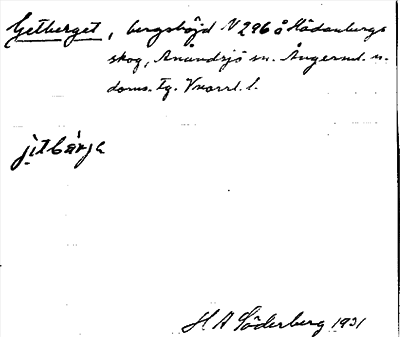 Getberget, bergshöjd N 296 å Hädanbergs
skog, Anundsjö sn. Ångerml. n.
doms. Fg. Vnorrl. l.
jitbärje
H A Söderberg 1931